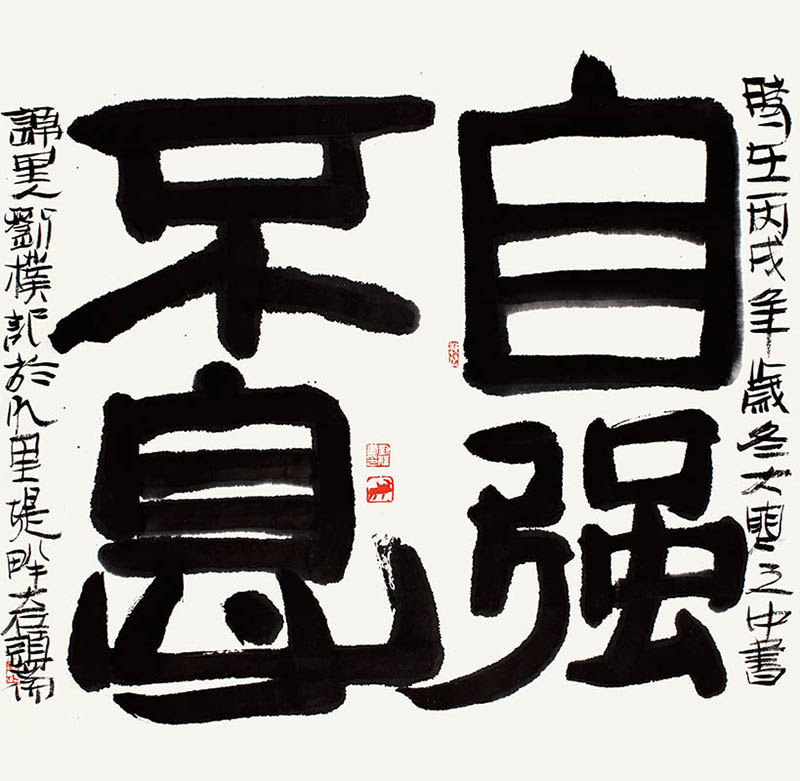 自强
不息
時在丙戌年歲冬大興之中書
歸里人劉樸記於九里堤畔石頭齋